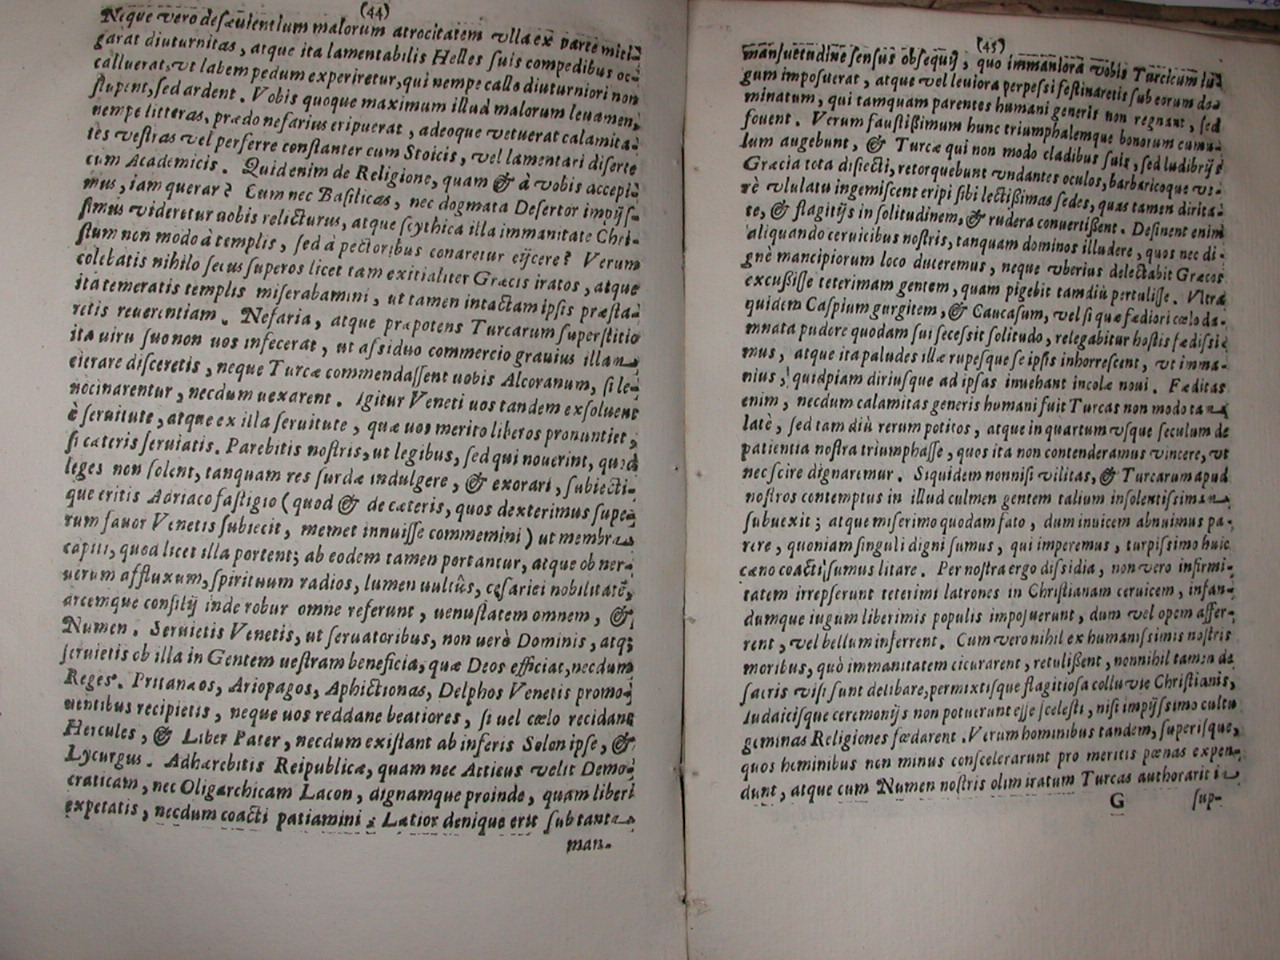 (44)
Neque vero desæuientium malorum atrocitatem vlla ex parte miti-
garat diuturnitas, atque ita lamentabilis Helles suis compedibus oc-
calluerat, vt labem pedum experiretur, qui nempe callo diuturniori non
stupent, sed ardent. Vobis quoque maximum illud malorum leuamen,
nempe litteras, prædo nefarius eripuerat, adeoque vetuerat calamita-
tes vestras vel perferre constanter cum Stoicis, vel lamentari diserte
cum Academicis. Quid enim de Religione, quam & à vobis accepi-
mus, iam querar? Cum nec Basilicas, nec dogmata Desertor impijs-
simus videretur uobis relicturus, atque scythica illa immanitate Chri-
stum non modo à templis, sed à pectoribus conaretur eijcere? Verum
colebatis nihilo secus superos licet tam exitialiter Græcis iratos, atque
ita temeratis templis miserabamini, ut tamen intactam ipsis præsta-
retis reuerentiam. Nefaria, atque præpotens Turcarum superstitio
ita uiru suo non uos infecerat, ut assiduo commercio grauius illam
eiurare disceretis, neque Turcæ commendassent uobis Alcoranum, si le-
nocinarentur, necdum uexarent. Igitur Veneti uos tandem exsoluent
è seruitute, atque ex illa seruitute, quæ uos merito liberos pronuntiet,
si cæteris seruiatis. Parebitis nostris, ut legibus, sed qui nouerint, quod
leges non solent, tanquam res surdæ indulgere, & exorari, subiecti-
que eritis Adriaco fastigio (quod & de cæteris, quos dexterimus supe-
rum fauor Venetis subiecit, memet innuisse commemini) ut membra
capiti, quod licet illa portent; ab eodem tamen portantur, atque ob ner-
uerum affluxum, spirituum radios, lumen uultûs, cęsariei nobilitatē,
arcemque consilij inde robur omne referunt, uenustatem omnem, &
Numen. Seruietis Venetis, ut seruatoribus, non uerò Dominis, atq;
seruietis ob illa in Gentem uestram beneficia, quæ Deos efficiat, necdum
Reges. Pritanæos, Ariopagos, Aphictionas, Delphos Venetis promo-
uentibus recipietis, neque uos reddane beatiores, si uel cœlo recidant
Hercules, & Liber Pater, necdum existant ab inferis Solon ipse, &
Lycurgus. Adhærebitis Reipublicæ, quam nec Atticus velit Demo-
craticam, nec Oligarchicam Lacon, dignamque proinde, quam liberi
expetatis, necdum coacti patiamini; Lætior denique erit sub tanta
man-
(45)
mansuetudine sensus obsequij, quo immaniora vobis Turcicum iu-
gum imposuerat, atque vel leuiora perpessi festinaretis sub eorum do-
minatum, qui tamquam parentes humani generis non regnant, sed
fouent. Verum faustißimum hunc triumphalemque bonorum cumu-
lum augebunt, & Turcæ qui non modo cladibus suis, sed ludibrijs
Græcia tota disiecti, retorquebunt vndantes oculos, barbaricoque ve-
rè vlulatu ingemiscent eripi sibi lectißimas sedes, quas tamen dirita-
te, & flagitijs in solitudinem, & rudera conuertißent. Desinent enim
aliquando ceruicibus nostris, tanquam dominos illudere, quos nec di-
gnè mancipiorum loco duceremus, neque vberius delectabit Græcos
excußisse teterimam gentem, quam pigebit tamdiù pertulisse. Vltra
quidem Caspium gurgitem, & Caucasum, vel si quæ fœdiori cœlo da-
mnata pudere quodam sui secessit solitudo, relegabitur hostis fœdissi-
mus, atque ita paludes illæ rupesque se ipsis inhorrescent, vt imma-
nius, quidpiam diriusque ad ipsas inuehant incolæ noui. Fœditas
enim, necdum calamitas generis humani fuit Turcas non modo tam
latè, sed tam diù rerum potitos, atque in quartum vsque seculum de
patientia nostra triumphasse, quos ita non contenderamus vincere, vt
nec scire dignaremur. Siquidem nonnisi vilitas, & Turcarum apud
nostros contemptus in illud culmen gentem talium insolentissimam
subuexit; atque miserimo quodam fato, dum inuicem abnuimus pa-
rere, quoniam singuli digni sumus, qui imperemus, turpissimo huic
cæno coacti sumus litare. Per nostra ergo dissidia, non vero infirmi-
tatem irrepserunt teterimi latrones in Christianam ceruicem, infan-
dumque iugum liberimis populis imposuerunt, dum vel opem affer-
rent, vel bellum inferrent. Cum vero nihil ex humanissimis nostris
moribus, quò immanitatem cicurarent, retulißent, nonnihil tamen de
sacris visi sunt delibare, permixtisque flagitiosa colluuie Christianis,
Iudaicisque ceremonijs non potuerunt esse scelesti, nisi impijssimo cultu
geminas Religiones fœdarent. Verum hominibus tandem, superisque,
quos hominibus non minus conscelerarunt pro meritis pœnas expen-
dunt, atque cum Numen nostris olim iratum Turcas authorarit in
G sup-